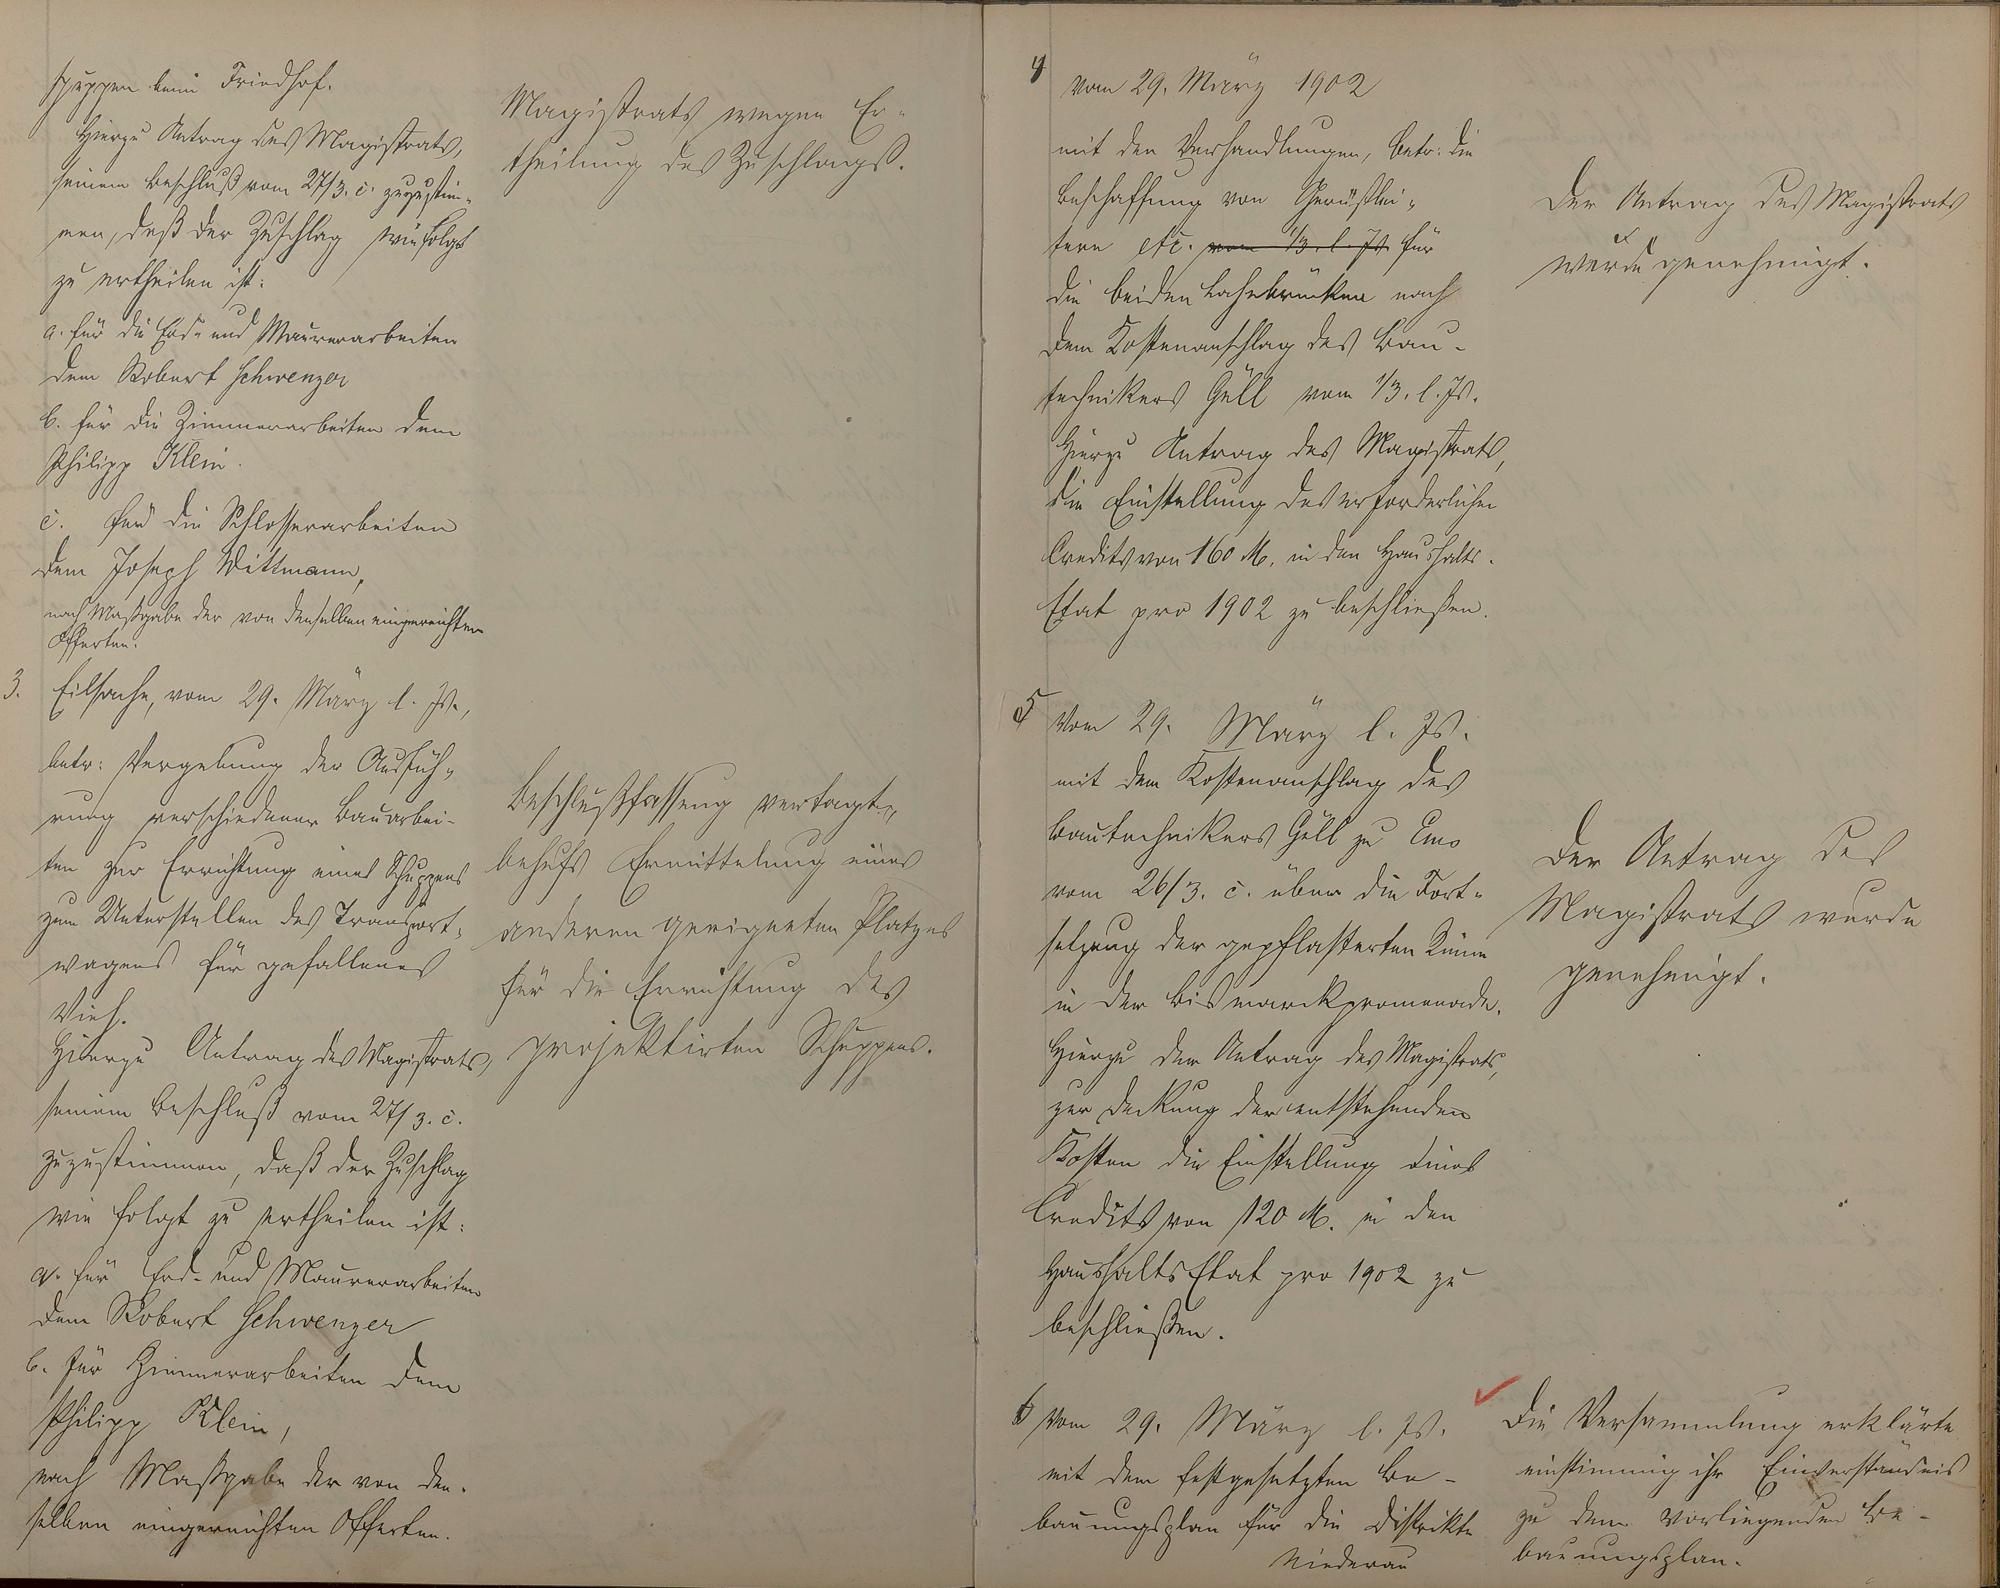 schuppen beim Friedhof.
Hierzu Antrag des Magistrats,
seinem Beschluß vom 27/3. c. zuzustim-
men, daß der Zuschlag wie folgt
zu ertheilen ist:
a. für die Erd- und Maurerarbeiten
dem Robert Schwenzer
b. für die Zimmerarbeiten dem
Philipp Klein.
c. für die Schlosserarbeiten
dem Joseph Wittmann,
nach Maßgabe der von denselben eingereichten
Offerten.
Magistrats wegen Er-
theilung des Zuschlags.
3. Eilsache, vom 29. März l. Js.,
betr: Vergebung der Ausfüh-
rung verschiedener Bauarbei-
ten zur Errichtung eines Schuppens
zum Unterstellen des Transport-
wagens für gefallenes
Vieh.
Hierzu Antrag des Magistrats,
seinem Beschluß vom 27/3. c.
zuzustimmen, daß der Zuschlag
wie folgt zu ertheilen ist:
a. für Erd- und Maurerarbeiten
dem Robert Schwenzer
b. für Zimmerarbeiten dem
Philipp Klein,
nach Maßgabe der von den-
selben eingereichten Offerten.
Beschlußfassung vertagt
behufs Ermittelung eines
anderen geeigneten Platzes
für die Errichtung des
projektirten Schuppens.
4 vom 29. März 1902
mit den Verhandlungen, betr: die
Beschaffung von Gerüstlei-
tern etc. vom 1/3. l. Js. für
die beiden Lahnbrücken nach
dem Kostenanschlag des Bau-
technikers Göll vom 1/3. l. Js.
Hierzu Antrag des Magistrats,
die Einstellung des erforderlichen
Credits von 160 M. in den Haushalts-
Etat pro 1902 zu beschließen.
Der Antrag des Magistrats
wurde genehmigt.
5 Vom 29. März l. Js.
mit dem Kostenanschlag des
Bautechnikers Göll zu Ems
vom 26/3. c. über die Fort-
setzung der gepflasterten Rinne
in der Bismarckpromenade.
Hierzu der Antrag des Magistrats,
zur Deckung der entstehenden
Kosten die Einstellung eines
Credits von 120 M. in den
Haushalts Etat pro 1902 zu
beschließen.
Der Antrag des
Magistrats wurde
genehmigt.
6 Vom 29. März l. Js.
mit dem festgesetzten Be-
bauungsplan für die Distrikte
Niederau
Die Versammlung erklärte
einstimmig ihr Einverständnis
zu dem vorliegenden Be-
bauungsplan.